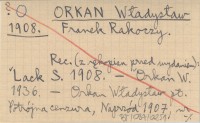 O ORKAN Władysław
1908. Franek Rakoczy.
Rec. (z rękopisu przed wydaniem):
Lack S. 1908. – Orkan W.
1936. – Orkan Władysław st.
Potrójna cenzura, Naprzód 1907, nr